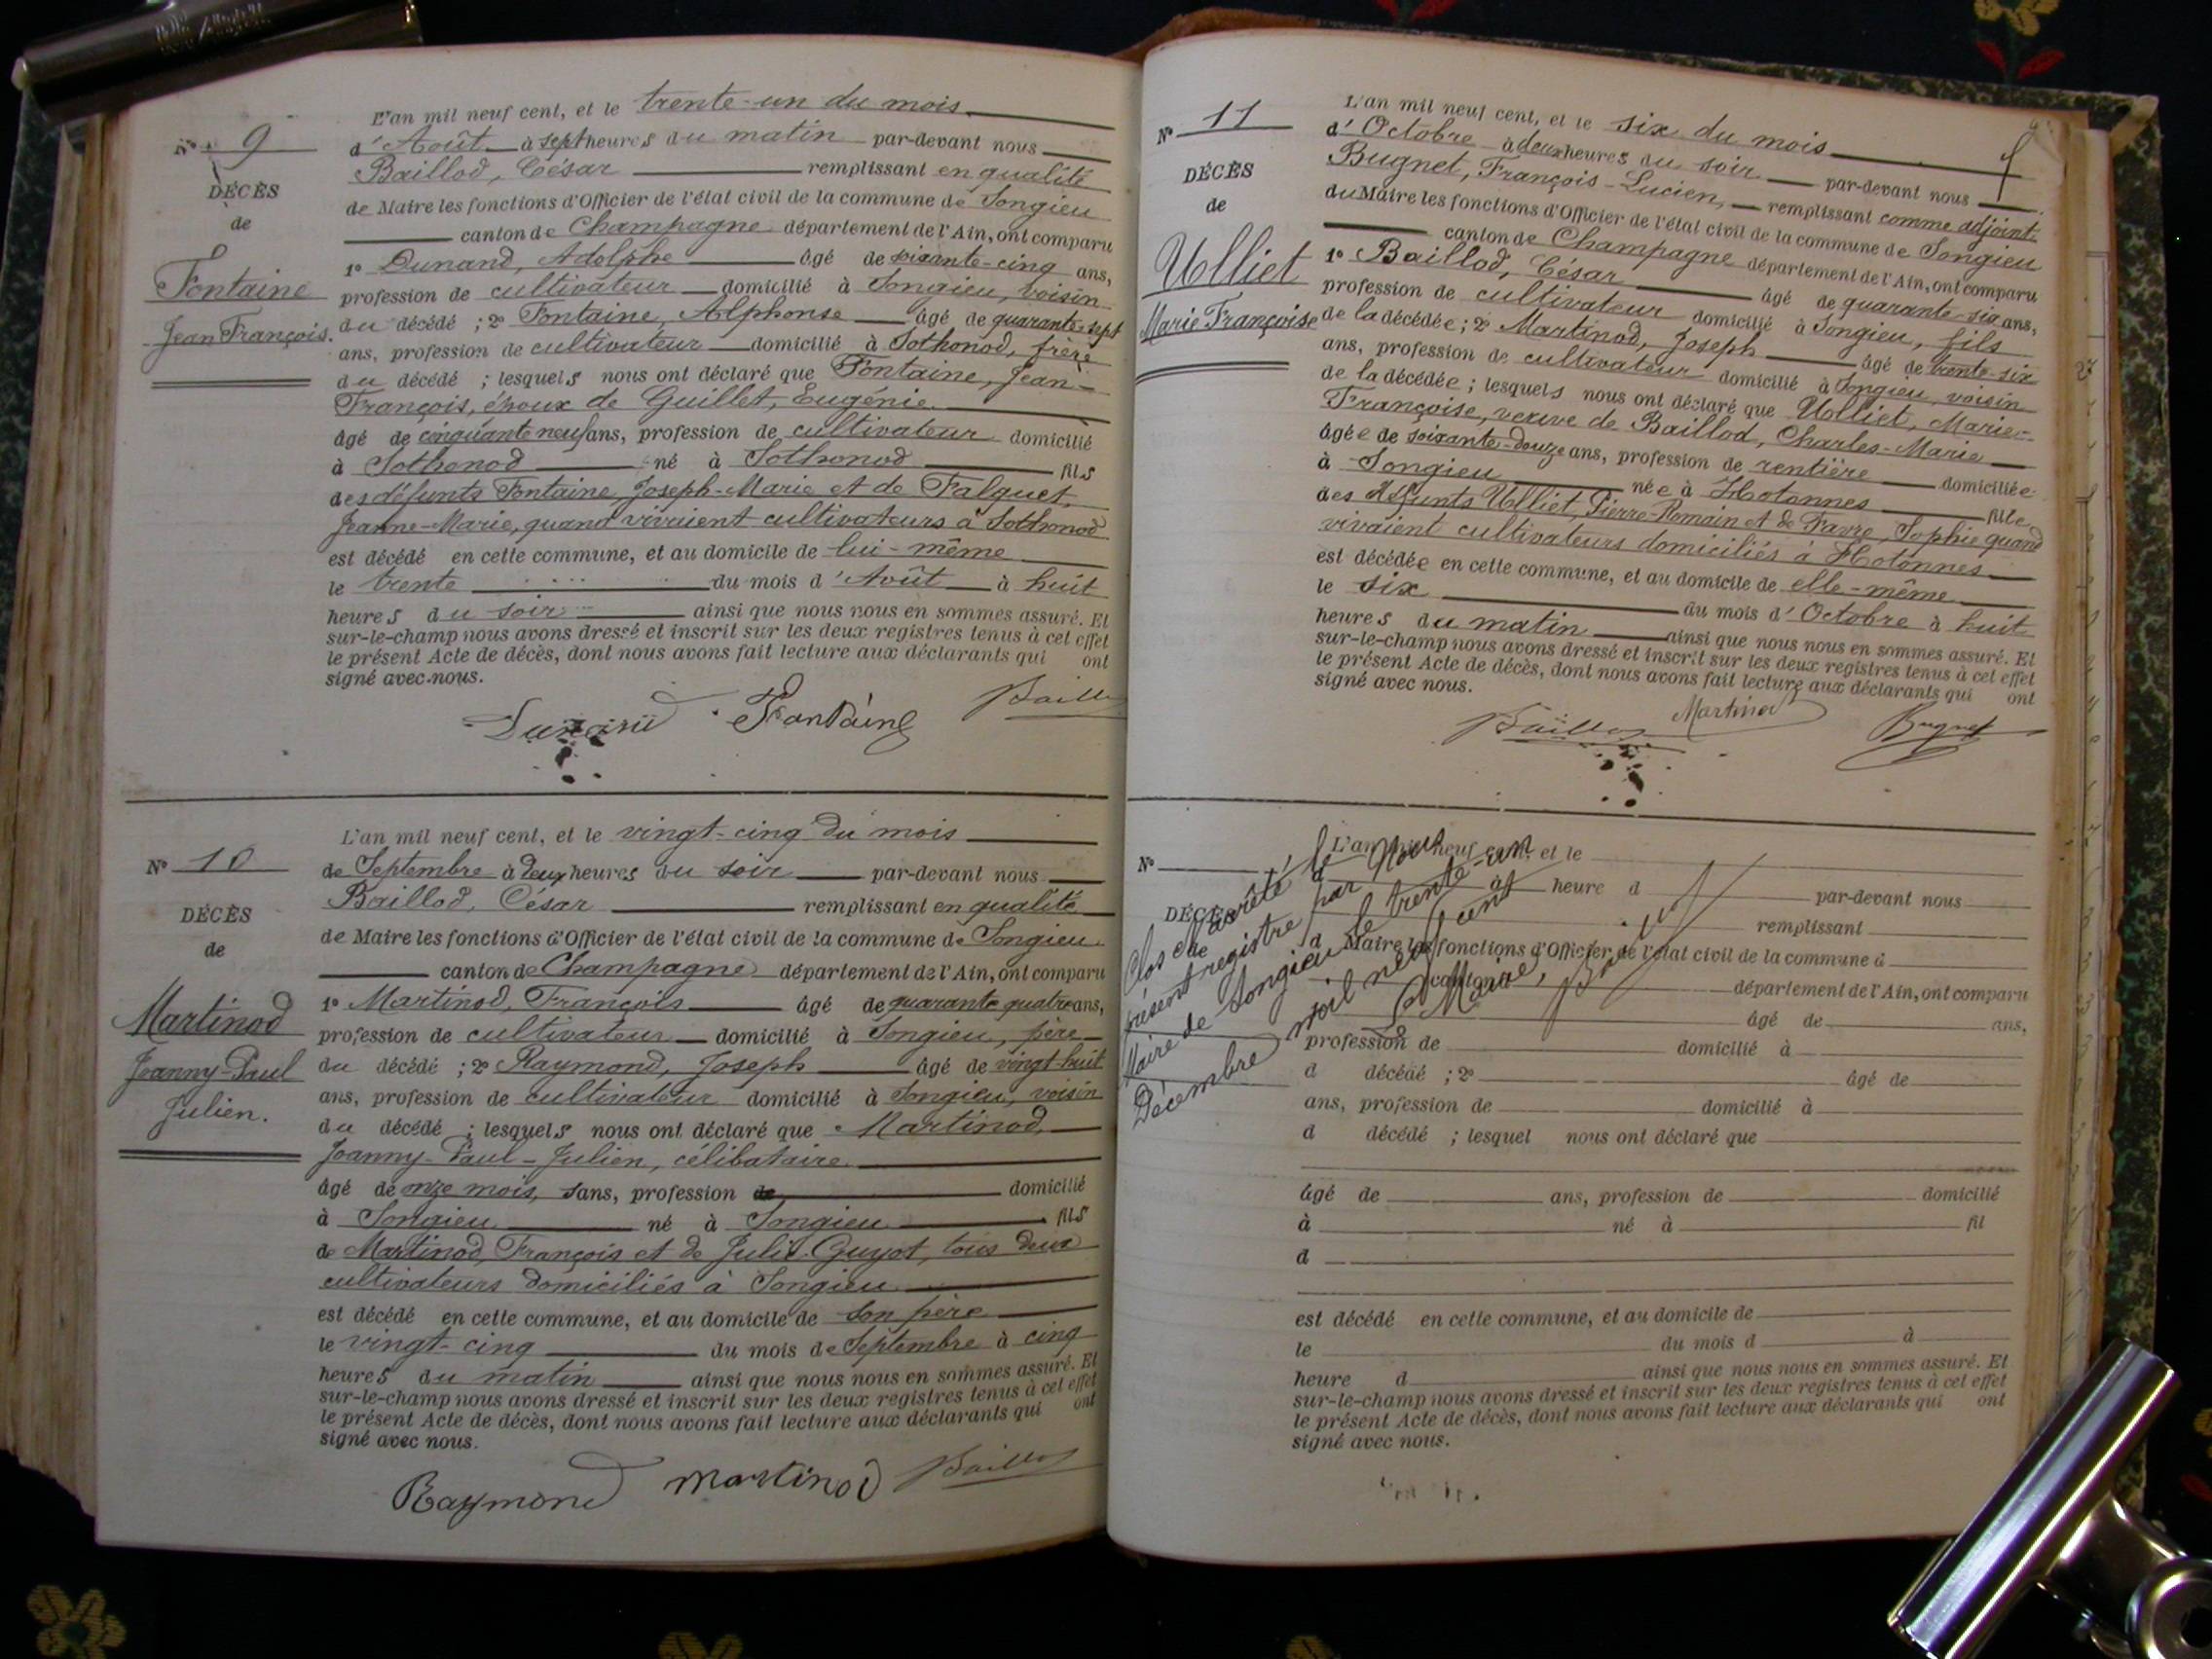 N° 9
DÉCÈS
de
Fontaine
Jean François.
L'an mil neuf cent, et le trente-un du mois
d'Août à sept heures du matin par-devant nous
Baillod, César remplissant en qualité
de Maire les fonctions d'Officier de l'état civil de la commune de Songieu
canton de Champagne département de l'Ain, ont comparu
1° Dunand, Adolphe âgé de soixante-cinq ans,
profession de cultivateur domicilié à Songieu, voisin
du décédé ; 2° Fontaine, Alphonse âgé de quarante-sept
ans, profession de cultivateur domicilié à Sothonod, frère
du décédé ; lesquels nous ont déclaré que Fontaine, Jean-
François, époux de Guillet, Eugénie
âgé de cinquante neuf ans, profession de cultivateur domicilié
à Sothonod né à Sothonod fils
des défunts Fontaine, Joseph-Marie et de Falquet,
Jeanne-Marie, quand vivaient cultivateurs à Sothonod
est décédé en cette commune, et au domicile de lui-même
le trente du mois d'Août à huit
heures du soir ainsi que nous nous en sommes assuré. Et
sur-le-champ nous avons dressé et inscrit sur les deux registres tenus à cet effet
le présent Acte de décès, dont nous avons fait lecture aux déclarants qui ont
signé avec nous.
Dunand Fontaine Baillod
N° 10
DÉCÈS
de
Martinod
Joanny-Paul
Julien.
L'an mil neuf cent, et le vingt-cinq du mois
de Septembre à deux heures du soir par-devant nous
Baillod, César remplissant en qualité
de Maire les fonctions d'Officier de l'état civil de la commune de Songieu
canton de Champagne département de l'Ain, ont comparu
1° Martinod, François âgé de quarante quatre ans,
profession de cultivateur domicilié à Songieu, père
du décédé ; 2° Raymond, Joseph âgé de vingt-huit
ans, profession de cultivateur domicilié à Songieu, voisin
du décédé ; lesquels nous ont déclaré que Martinod
Joanny-Paul-Julien, célibataire
âgé de onze mois, sans, profession de domicilié
à Songieu né à Songieu fils
de Martinod, François et de Julie Guyot, tous deux
cultivateurs domiciliés à Songieu
est décédé en cette commune, et au domicile de son père
le vingt-cinq du mois de Septembre à cinq
heures du matin ainsi que nous nous en sommes assuré. Et
sur-le-champ nous avons dressé et inscrit sur les deux registres tenus à cet effet
le présent Acte de décès, dont nous avons fait lecture aux déclarants qui ont
signé avec nous.
Raymond Martinod Baillod
N° 11
DÉCÈS
de
Ulliet
Marie Françoise
L'an mil neuf cent, et le six du mois
d'Octobre à deux heures du soir par-devant nous
Bugnet, François-Lucien, remplissant comme adjoint
du Maire les fonctions d'Officier de l'état civil de la commune de Songieu
canton de Champagne département de l'Ain, ont comparu
1° Baillod, César âgé de quarante-six ans,
profession de cultivateur domicilié à Songieu, fils
de la décédée ; 2° Martinod, Joseph âgé de trente-six
ans, profession de cultivateur domicilié à Songieu, voisin
de la décédée ; lesquels nous ont déclaré que Ulliet, Marie-
Françoise, veuve de Baillod, Charles-Marie
âgée de soixante-douze ans, profession de rentière domiciliée
à Songieu née à Hotonnes fille
des défunts Ulliet, Pierre-Romain et de Favre, Sophie quand
vivaient cultivateurs domiciliés à Hotonnes
est décédée en cette commune, et au domicile de elle-même
le six du mois d'Octobre à huit
heures du matin ainsi que nous nous en sommes assuré. Et
sur-le-champ nous avons dressé et inscrit sur les deux registres tenus à cet effet
le présent Acte de décès, dont nous avons fait lecture aux déclarants qui ont
signé avec nous.
Baillod Martinod Bugnet
N°
DÉCÈS
de
Clos et arrêté le
présent registre par Nous
Maire de Songieu le trente-un
Décembre mil neuf cent
Le Maire,
Baillod
L'an mil neuf cent, et le
d à heure d par-devant nous
remplissant
d Maire les fonctions d'Officier de l'état civil de la commune d
canton d département de l'Ain, ont comparu
1° âgé de ans,
profession de domicilié à
d décédé ; 2° âgé de
ans, profession de domicilié à
d décédé ; lesquel nous ont déclaré que
âgé de ans, profession de domicilié
à né à fil
d
est décédé en cette commune, et au domicile de
le du mois d à
heure d ainsi que nous nous en sommes assuré. Et
sur-le-champ nous avons dressé et inscrit sur les deux registres tenus à cet effet
le présent Acte de décès, dont nous avons fait lecture aux déclarants qui ont
signé avec nous.